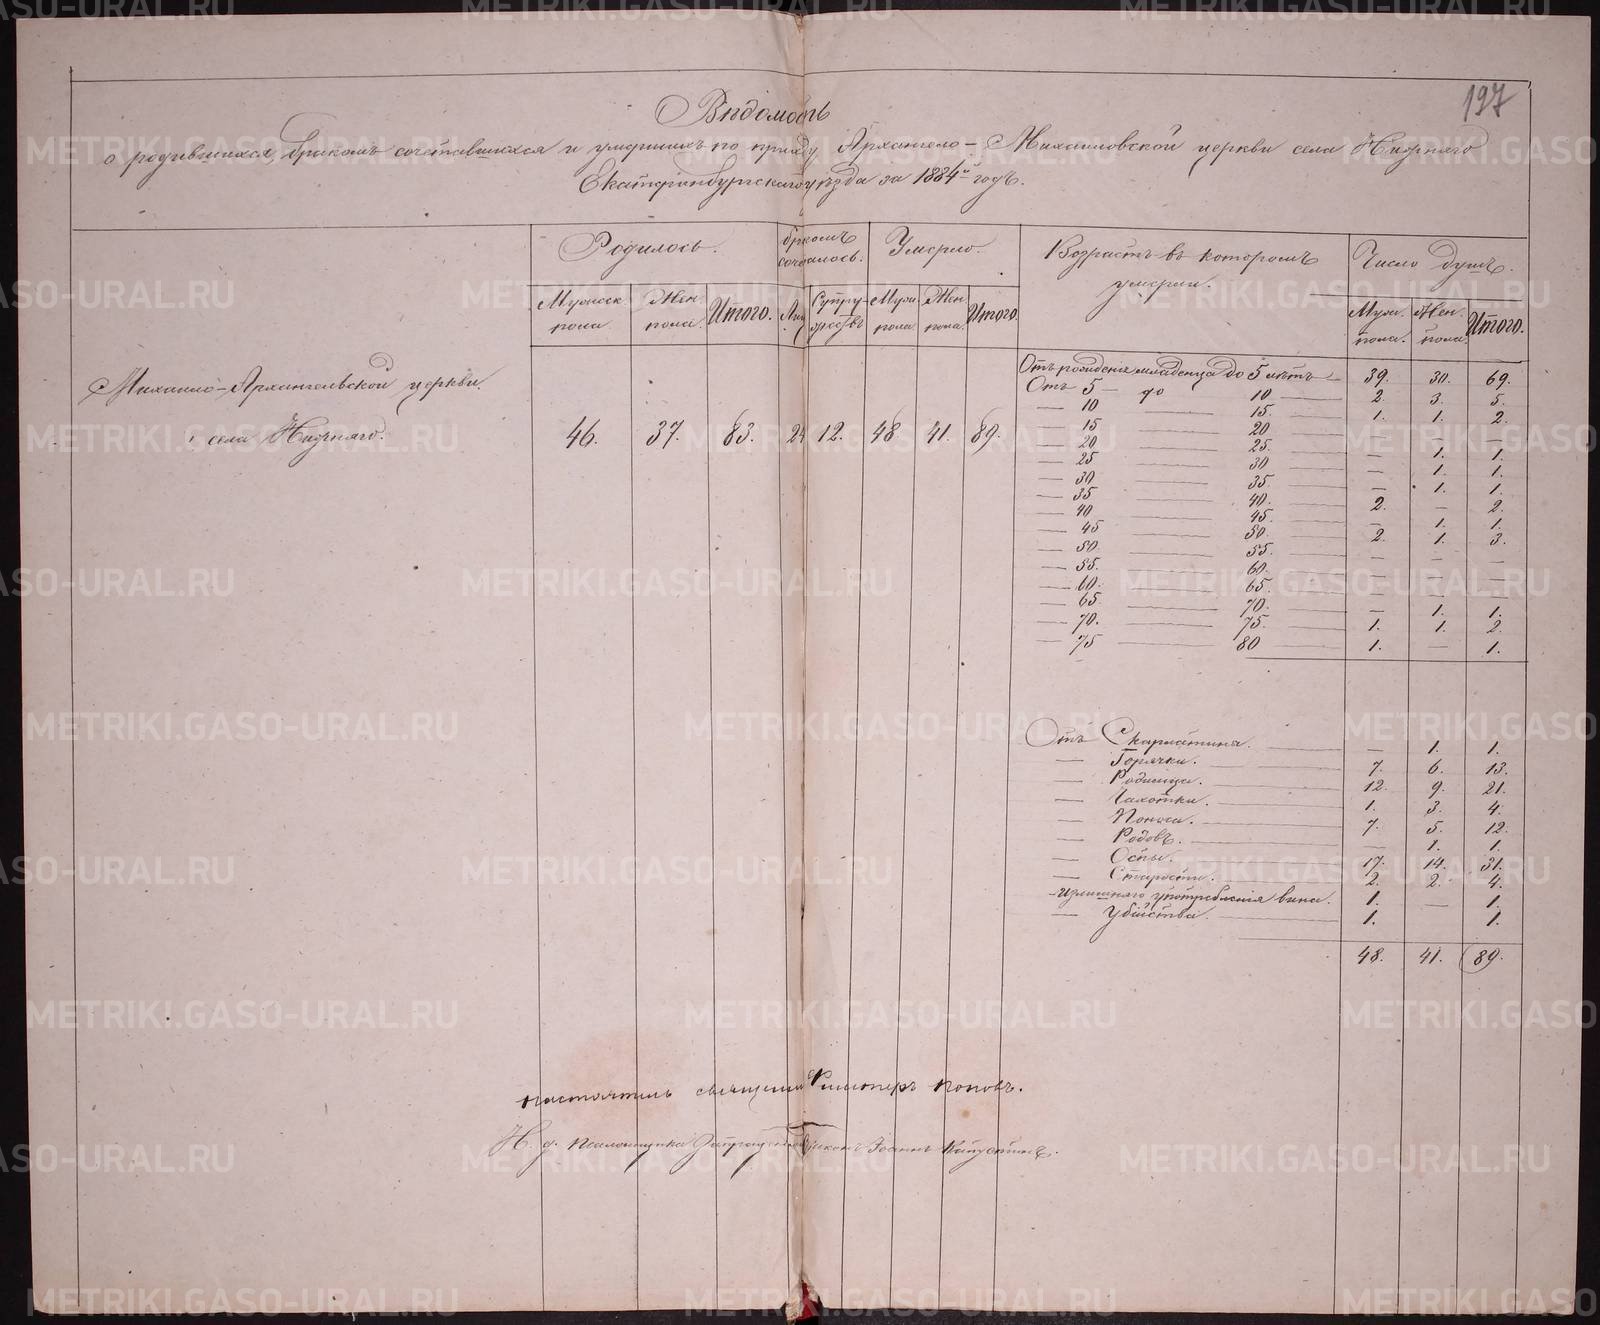 197
Вѣдомость
о родившихся, бракомъ сочетавшихся и умершихъ по приходу Архангело-Михаиловской церкви села
Екатеринбургскаго уѣзда за 1884й годъ.
Родилось.
бракомъ сочеталось.
Умерло.
Возрастъ въ которомъ умерли.
Число душъ.
Мужск. пола
Жен. пола.
Итого.
Супружествъ
Муж. пола
Жен. пола.
Итого.
Муж. пола.
Жен. пола.
Итого.
Михаило-Архангельской церкви.
села
46. 37. 83. 24 12. 48 41. 89.
Отъ рожденія младенца до 5 лѣтъ 39. 30. 69.
Отъ 5 — до 10 2. 3. 5.
— 10 — 15. 1. 1. 2.
— 15 — 20 — — —
— 20 — 25. — 1. 1.
— 25 — 30 — 1. 1.
— 30 — 35. — 1. 1.
— 35 — 40. 2. — 2.
— 40 — 45. — 1. 1.
— 45 — 50. 2. 1. 3.
— 50. — 55. — — —
— 55. — 60. — — —
— 60. — 65. — — —
— 65 — 70. — 1. 1.
— 70. — 75. 1. 1. 2.
— 75 — 80 1. — 1.
Отъ Скарлатины. — 1. 1.
— Горячки. 7. 6. 13.
— Родимца. 12. 9. 21.
— Чахотки. 1. 3. 4.
— Поноса. 7. 5. 12.
— Родовъ. — 1. 1.
— Оспы. 17. 14. 31.
— Старости. 2. 2. 4.
— Излишняго употребленія вина. 1. — 1.
— Убійства. 1. 1.
48. 41. 89.
Настоятель священн Поповъ.
И. д. псаломщика Іоаннъ
METRIKI.GASO-URAL.RU